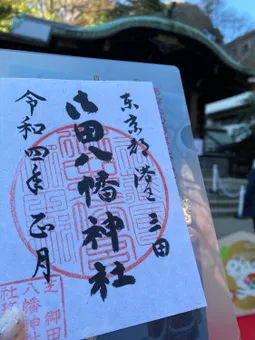 東京都港区三田
御田八幡神社
令和四年正月
芝 御田
八幡神社